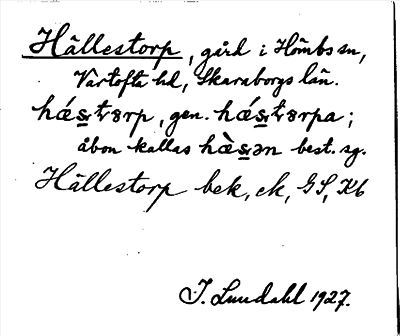 Hällestorp, gård i Hömbs sn,
Vartofta hd, Skaraborgs län.
hǽs̲tɤrp, gen. hǽs̲tɤrpa;
åbon kallas hæ̀s̲ən best. sg.
Hällestorp bek, ek, GS, Kb
J. Lundahl 1927.